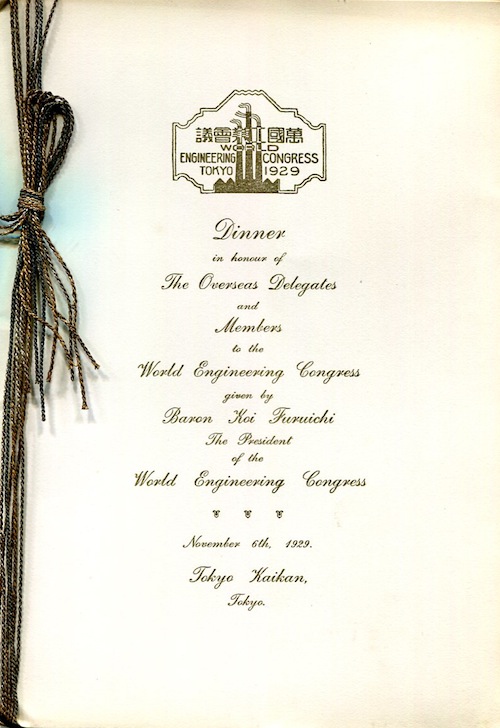 萬國工業會議
WORLD
ENGINEERING CONGRESS
TOKYO 1929
Dinner
in honour of
The Overseas Delegates
and
Members
to the
World Engineering Congress
given by
Baron Koi Furuichi
The President
of the
World Engineering Congress
November 6th, 1929.
Tokyo Kaikan,
Tokyo.